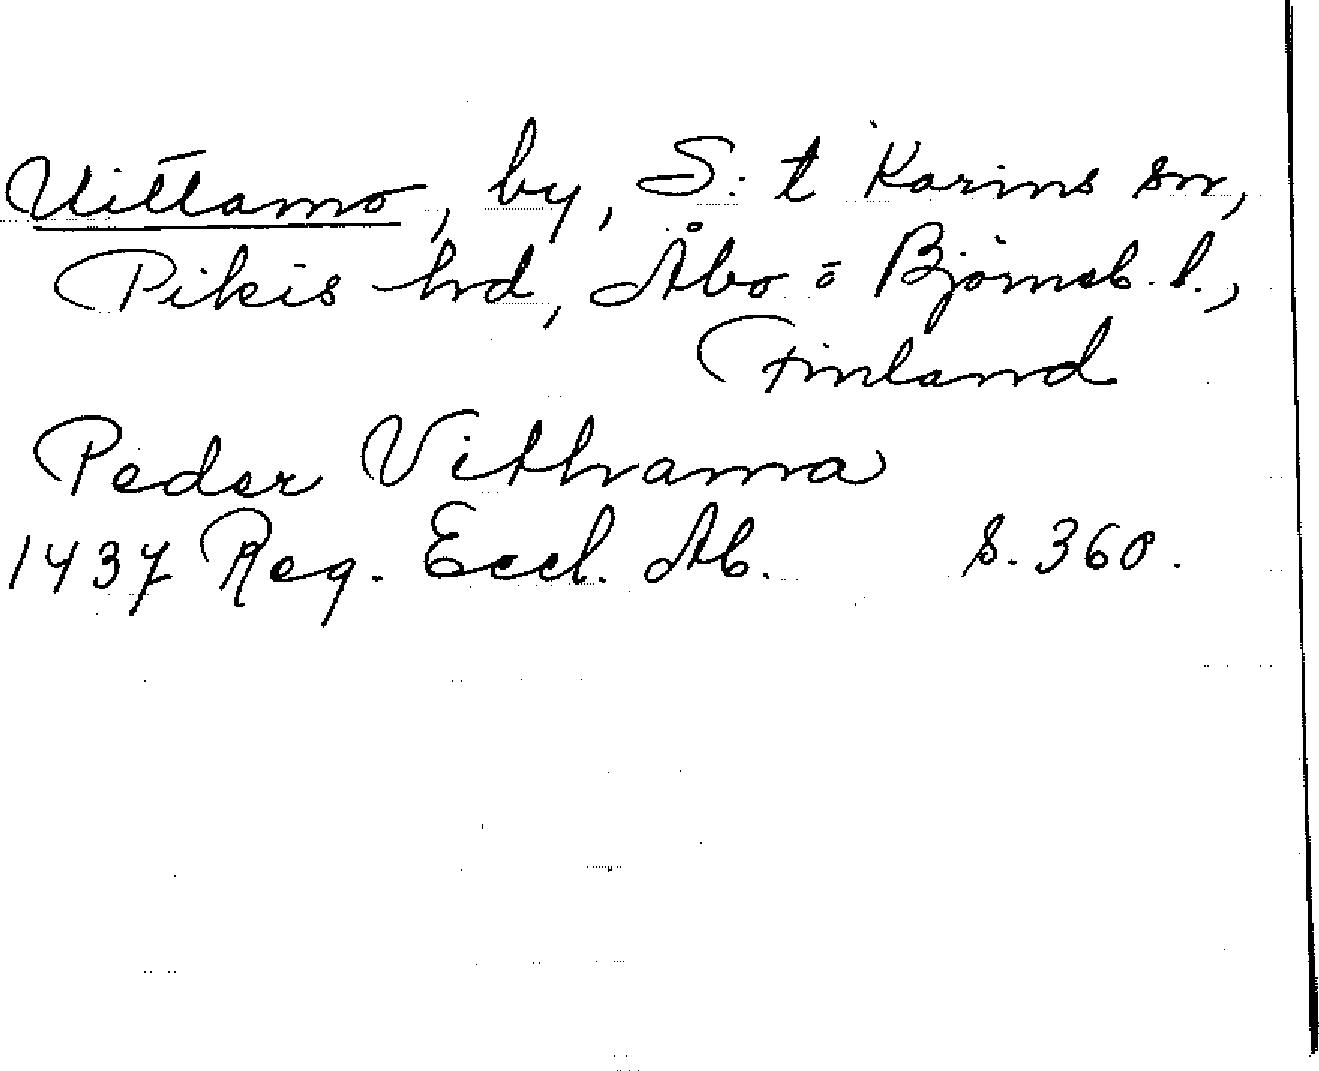 Uittamo, by, S:t Karins sn,
Pikis hrd, Åbo o Björneb. l.,
Finland
Peder Vithrama
1437 Reg. Eccl. Ab. s. 360.